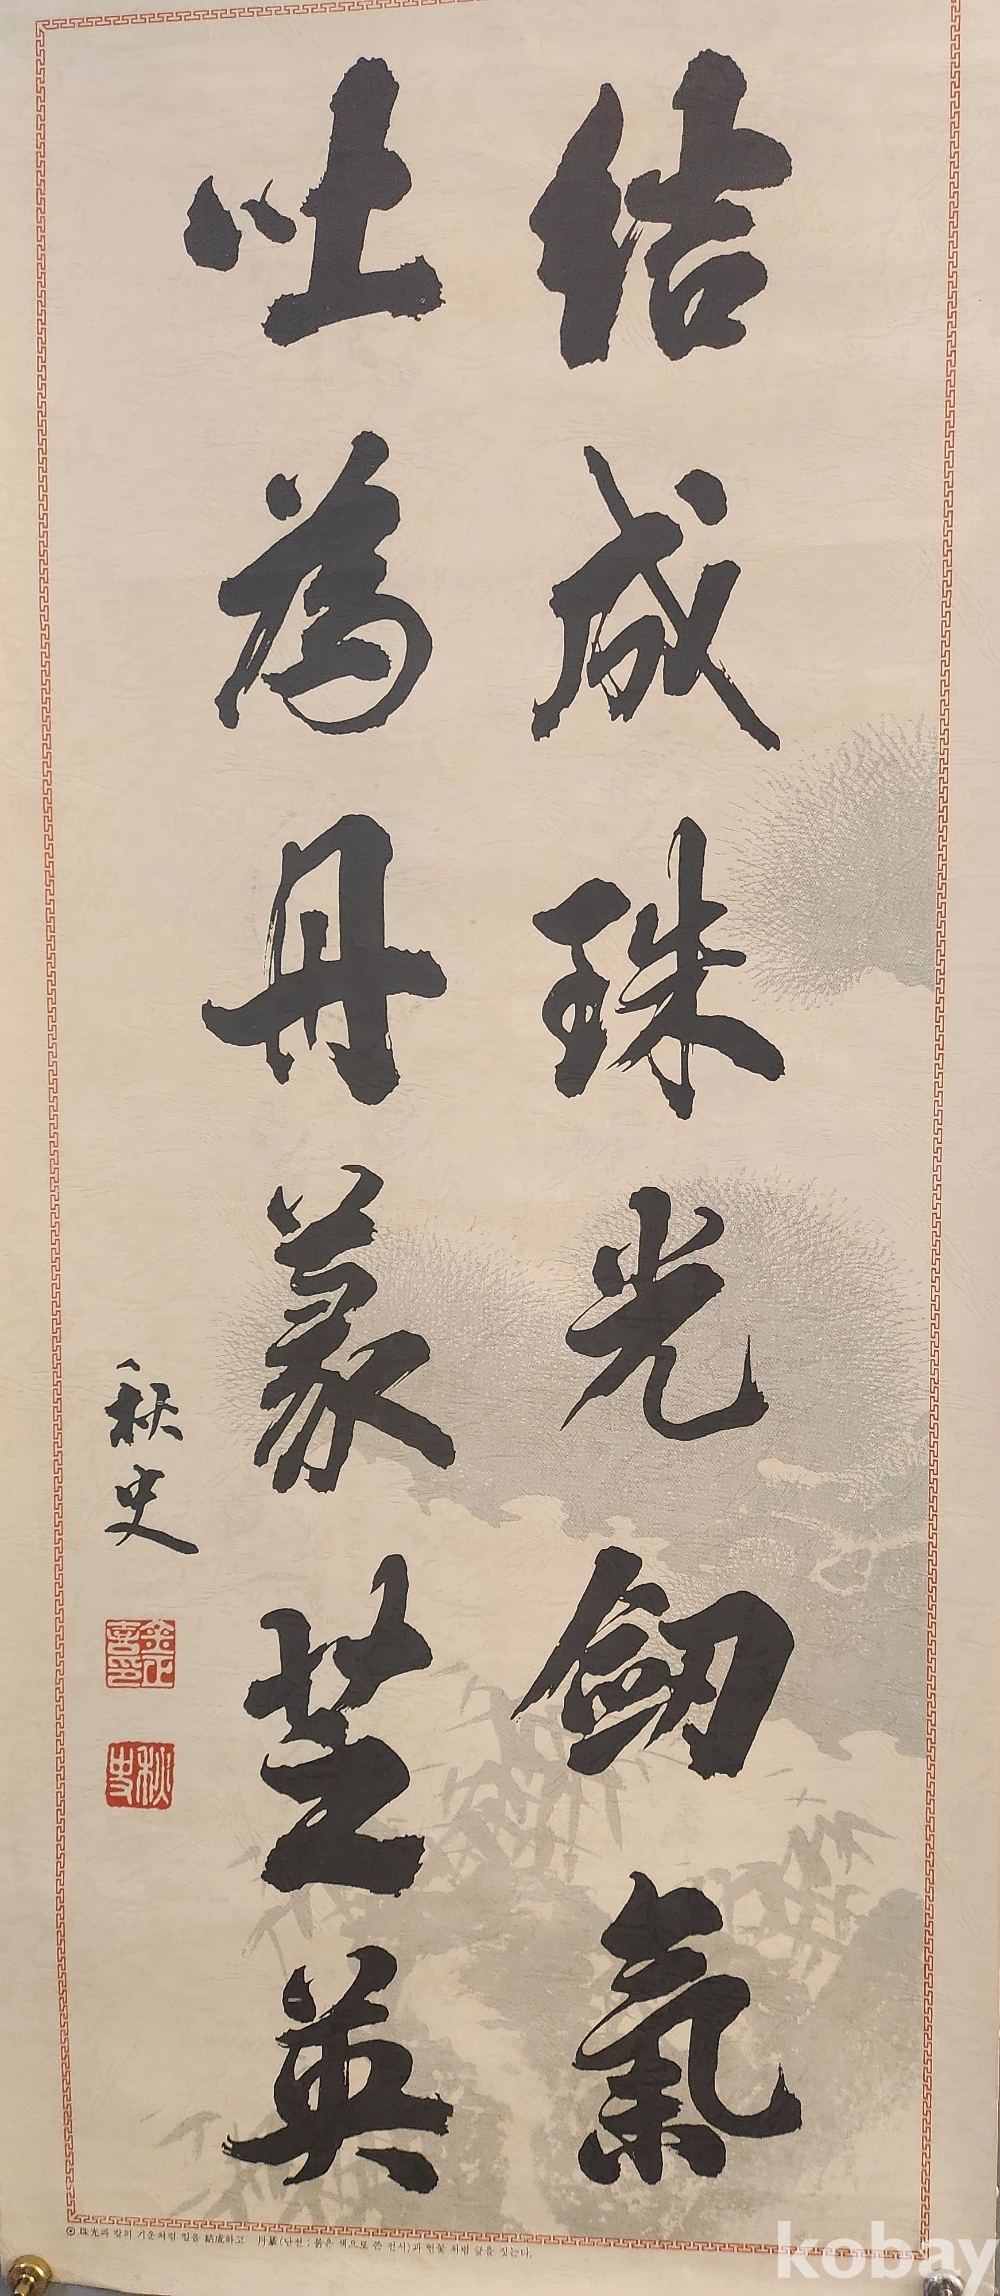 結成珠光劒氣
吐為丹篆芝英
秋史
金正喜印
秋史
⊙ 珠光과 칼의 기운처럼 일을 結成하고 丹篆(단전; 붉은 색으로 쓴 전서)과 연꽃 처럼 글을 짓는다.
kobay